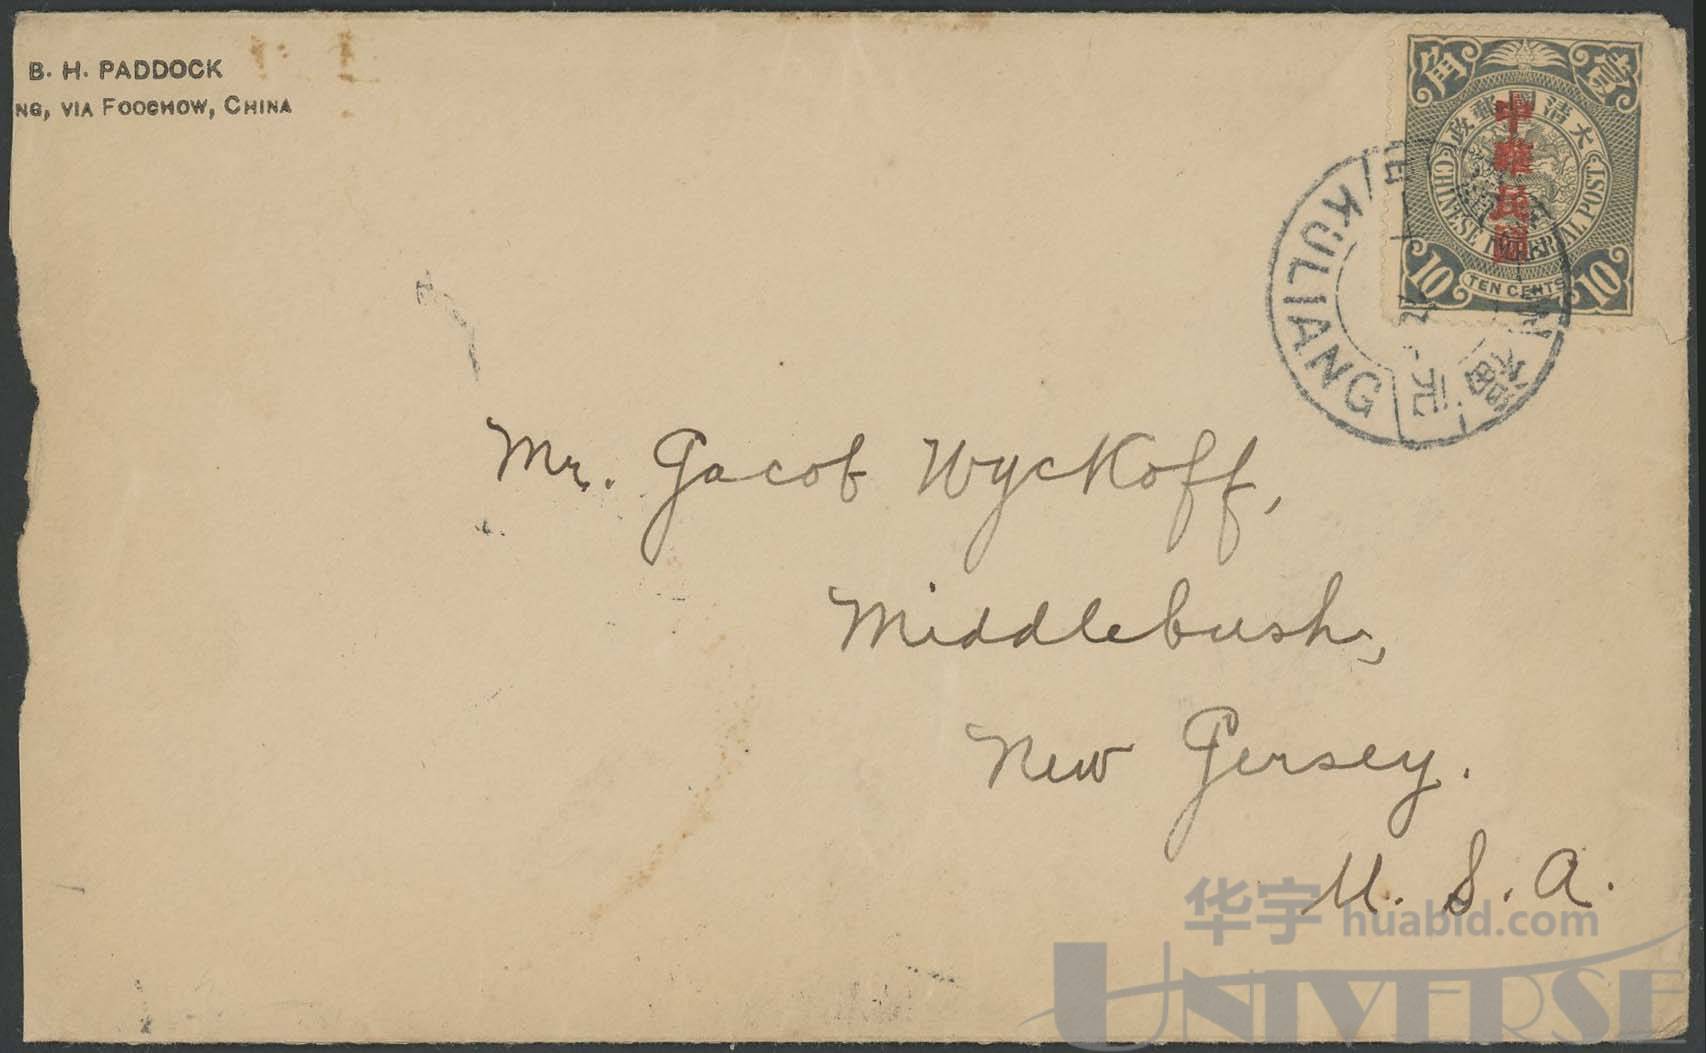 B. H. PADDOCK
NG, VIA FOOCHOW, CHINA
角 壹
大清國郵政
中華民國
CHINESE IMPERIAL POST
10 TEN CENTS 10
KULIANG
Mr. Jacob Wyckoff,
Middlebush,
New Jersey.
U. S. A.
华宇 huabid.com
UNIVERSE